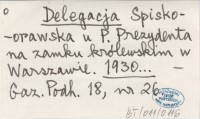 Delegacja Spisko-
-orawska u P. Prezydenta
na zamku królewskim w
Warszawie. 1930... —
Gaz. Podh. 18, nr 26
BT/011/0116